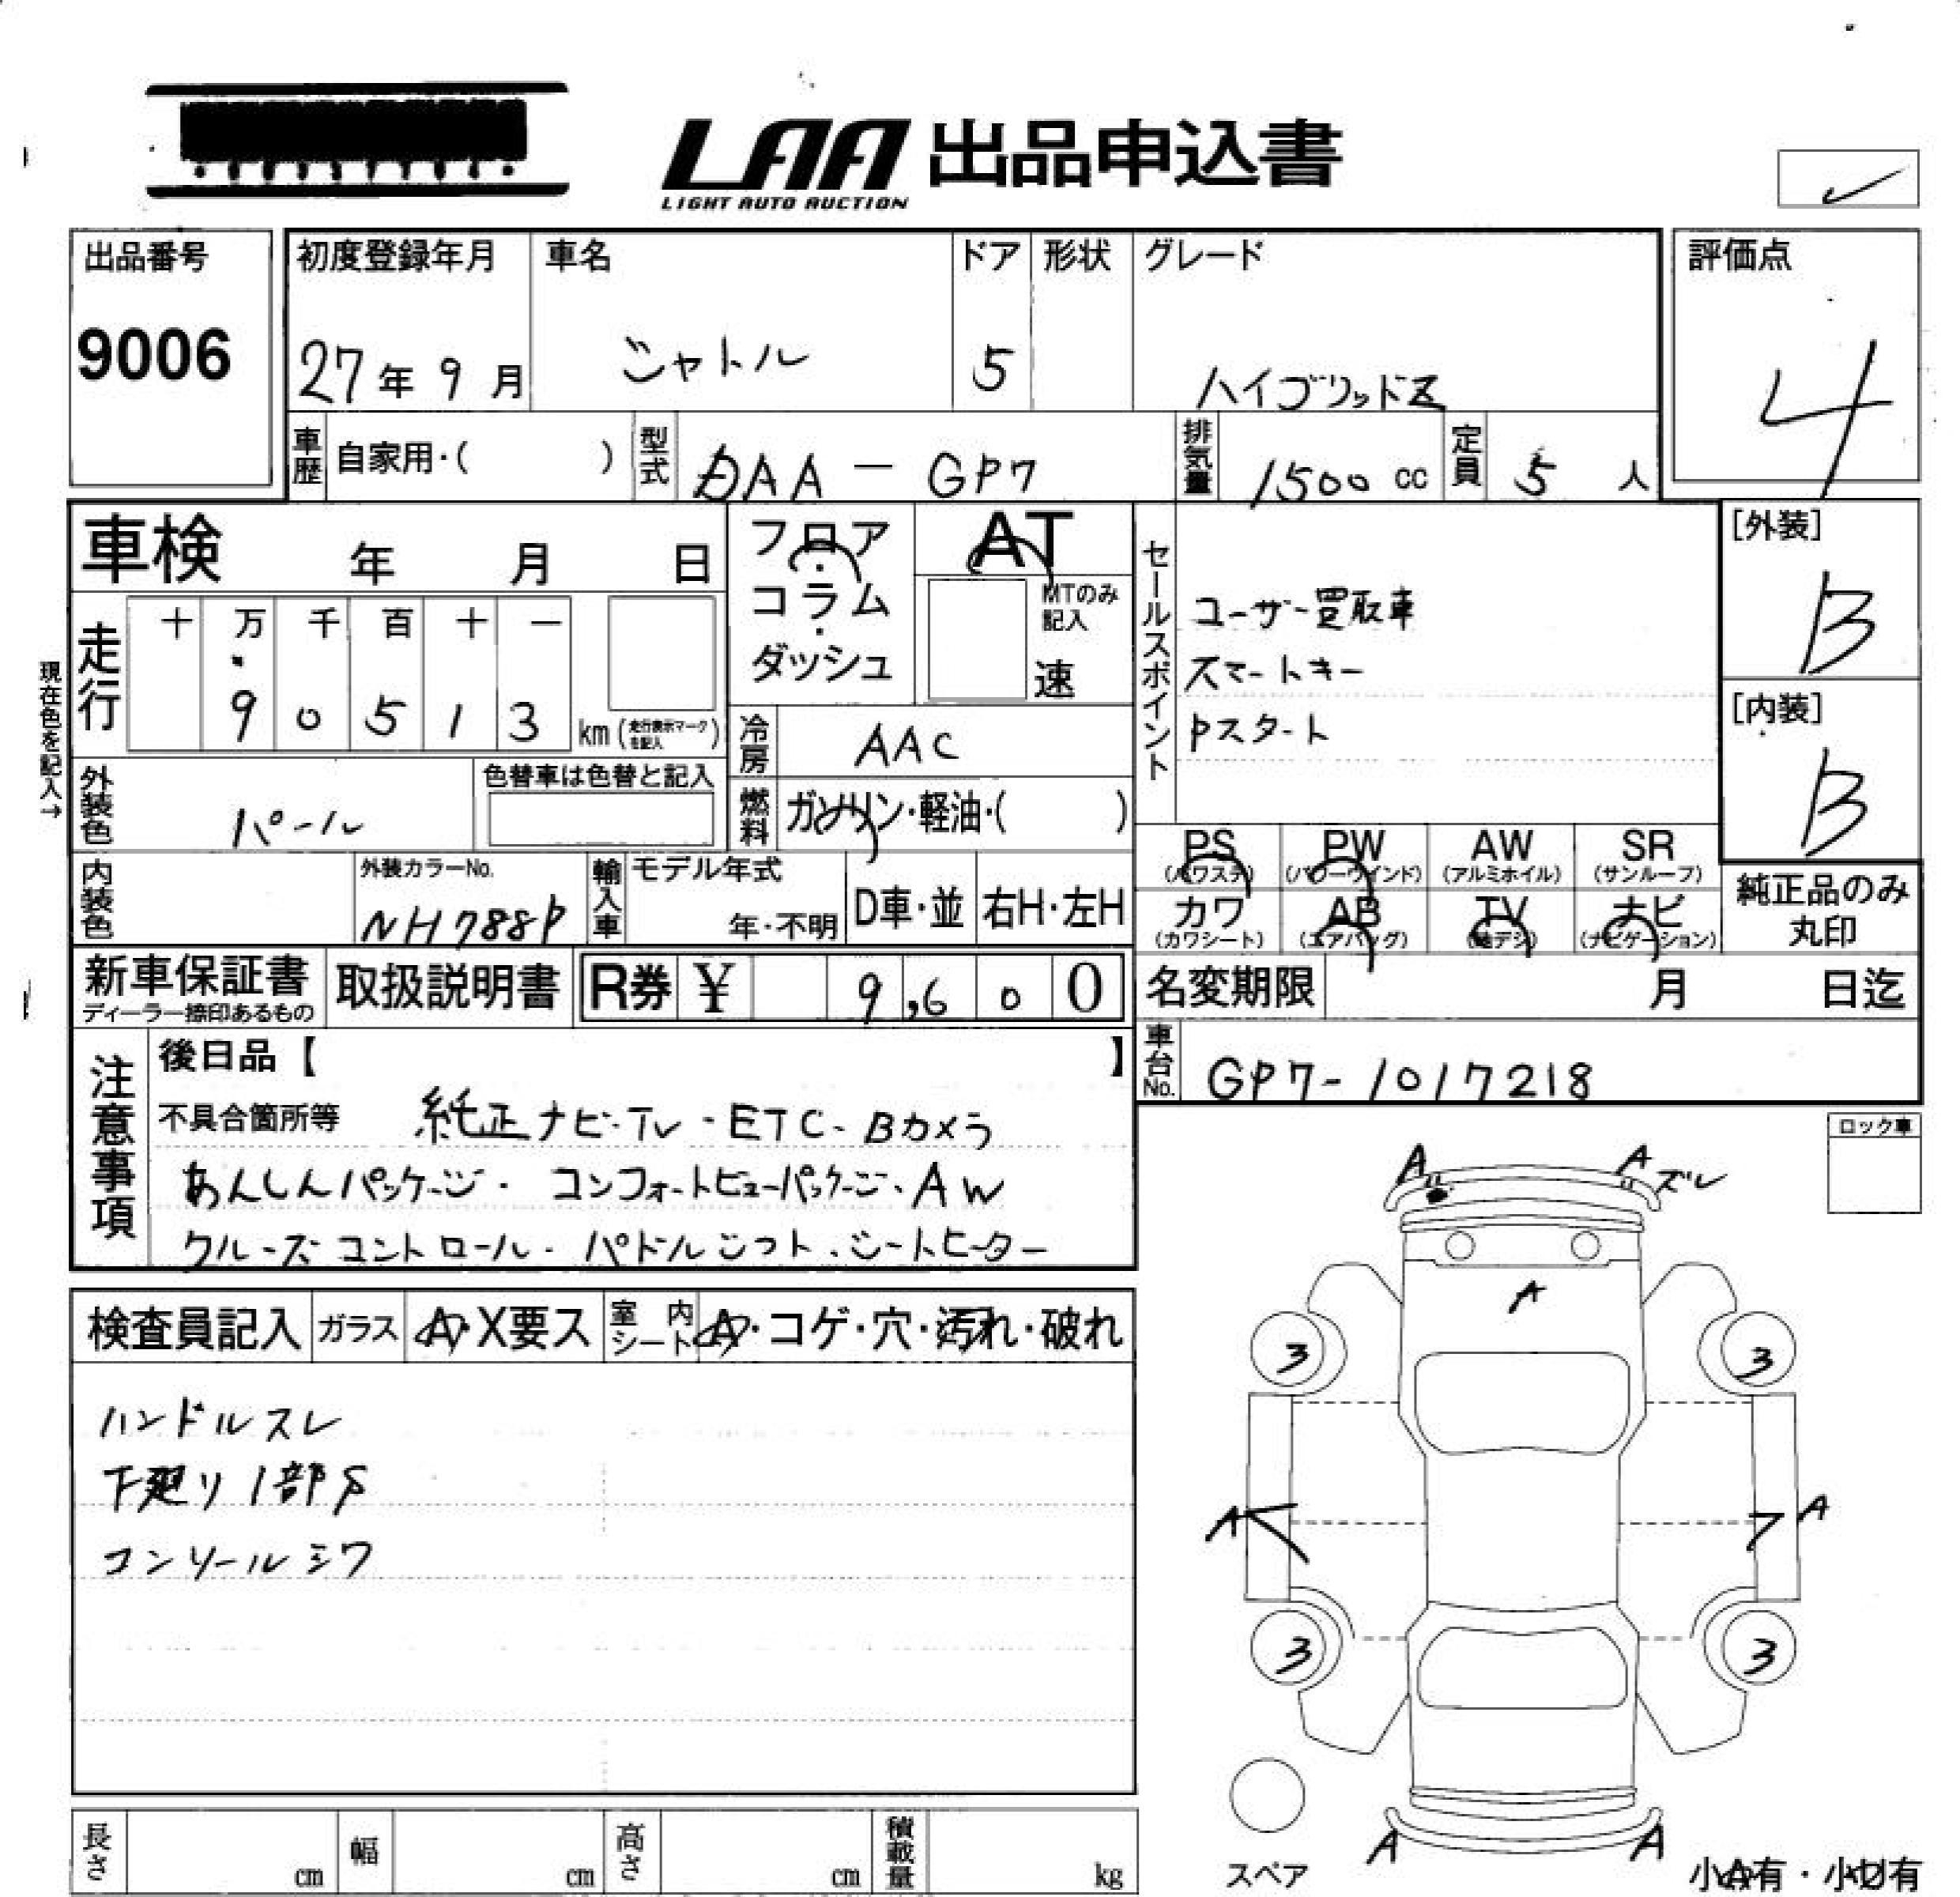 LAA 出品申込書
LIGHT AUTO AUCTION
出品番号
9006
初度登録年月
27年 9月
車名
シャトル
ドア
5
形状
グレード
ハイブリッドZ
評価点
4
車歴
自家用・( )
型式
DAA - GP7
排気量
1500 cc
定員
5 人
車検 年 月 日
フロア・コラム・ダッシュ
AT
MTのみ記入
速
セールスポイント
ユーザー買取車
スマートキー
Pスタート
[外装]
B
[内装]
B
現在色を記入→
走行
十 万 千 百 十 一
9 0 5 1 3 km (走行表示マークを記入)
冷房
AAC
外装色
パール
色替車は色替と記入
燃料
ガソリン・軽油・( )
PS (パワステ)
PW (パワーウインド)
AW (アルミホイル)
SR (サンルーフ)
カワ (カワシート)
AB (エアバッグ)
TV (地デジ)
ナビ (ナビゲーション)
純正品のみ丸印
内装色
外装カラーNo.
NH788P
輸入車
モデル年式
年・不明
D車・並
右H・左H
新車保証書
ディーラー捺印あるもの
取扱説明書
R券 ¥ 9,600
名変期限 月 日迄
車台No.
GP7-1017218
注意事項
後日品【 】
不具合箇所等 純正ナビ・TV・ETC・Bカメラ
あんしんパッケージ・コンフォートビューパッケージ・AW
クルーズコントロール・パドルシフト・シートヒーター
ロック車
A A ズレ
A
3 3
A A
3 3
A A
スペア
小A有・小凹有
検査員記入
ガラス
A・X要ス
室内シート
A・コゲ・穴・汚れ・破れ
ハンドルスレ
下廻り1部S
コンソールシワ
長さ cm
幅 cm
高さ cm
積載量 kg